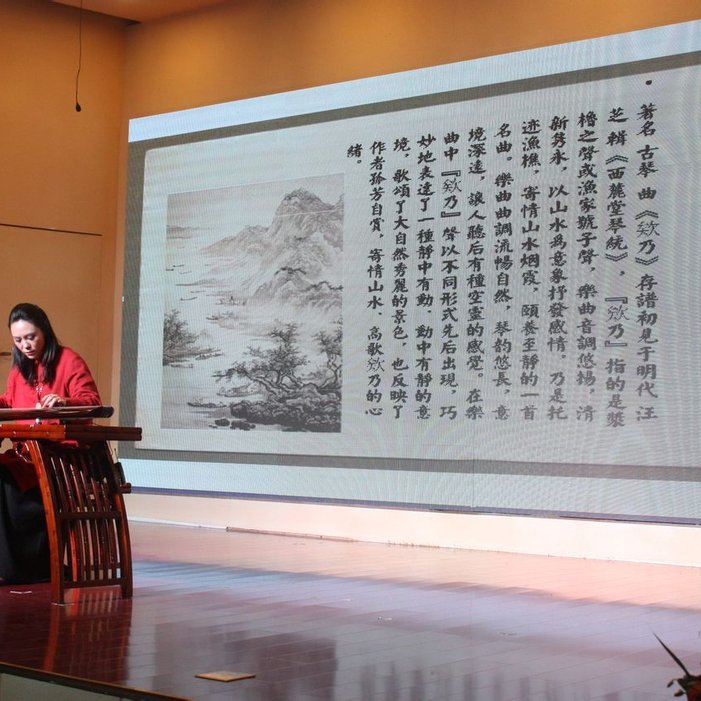 著名古琴曲《欸乃》存譜初見于明代汪
芝輯《西麓堂琴統》，『欸乃』指的是槳
櫓之聲或漁家號子聲，樂曲音調悠揚，清
新雋永，以山水為意象抒發感情，乃是托
迹漁樵，寄情山水烟霞，頤養至靜的一首
名曲。樂曲曲調流暢自然，琴韵悠長，意
境深遠，讓人聽后有種空靈的感覺。在樂
曲中『欸乃』聲以不同形式先后出現，巧
妙地表達了一種靜中有動，動中有靜的意
境，歌頌了大自然秀麗的景色，也反映了
作者孤芳自賞，寄情山水，高歌欸乃的心
緒。